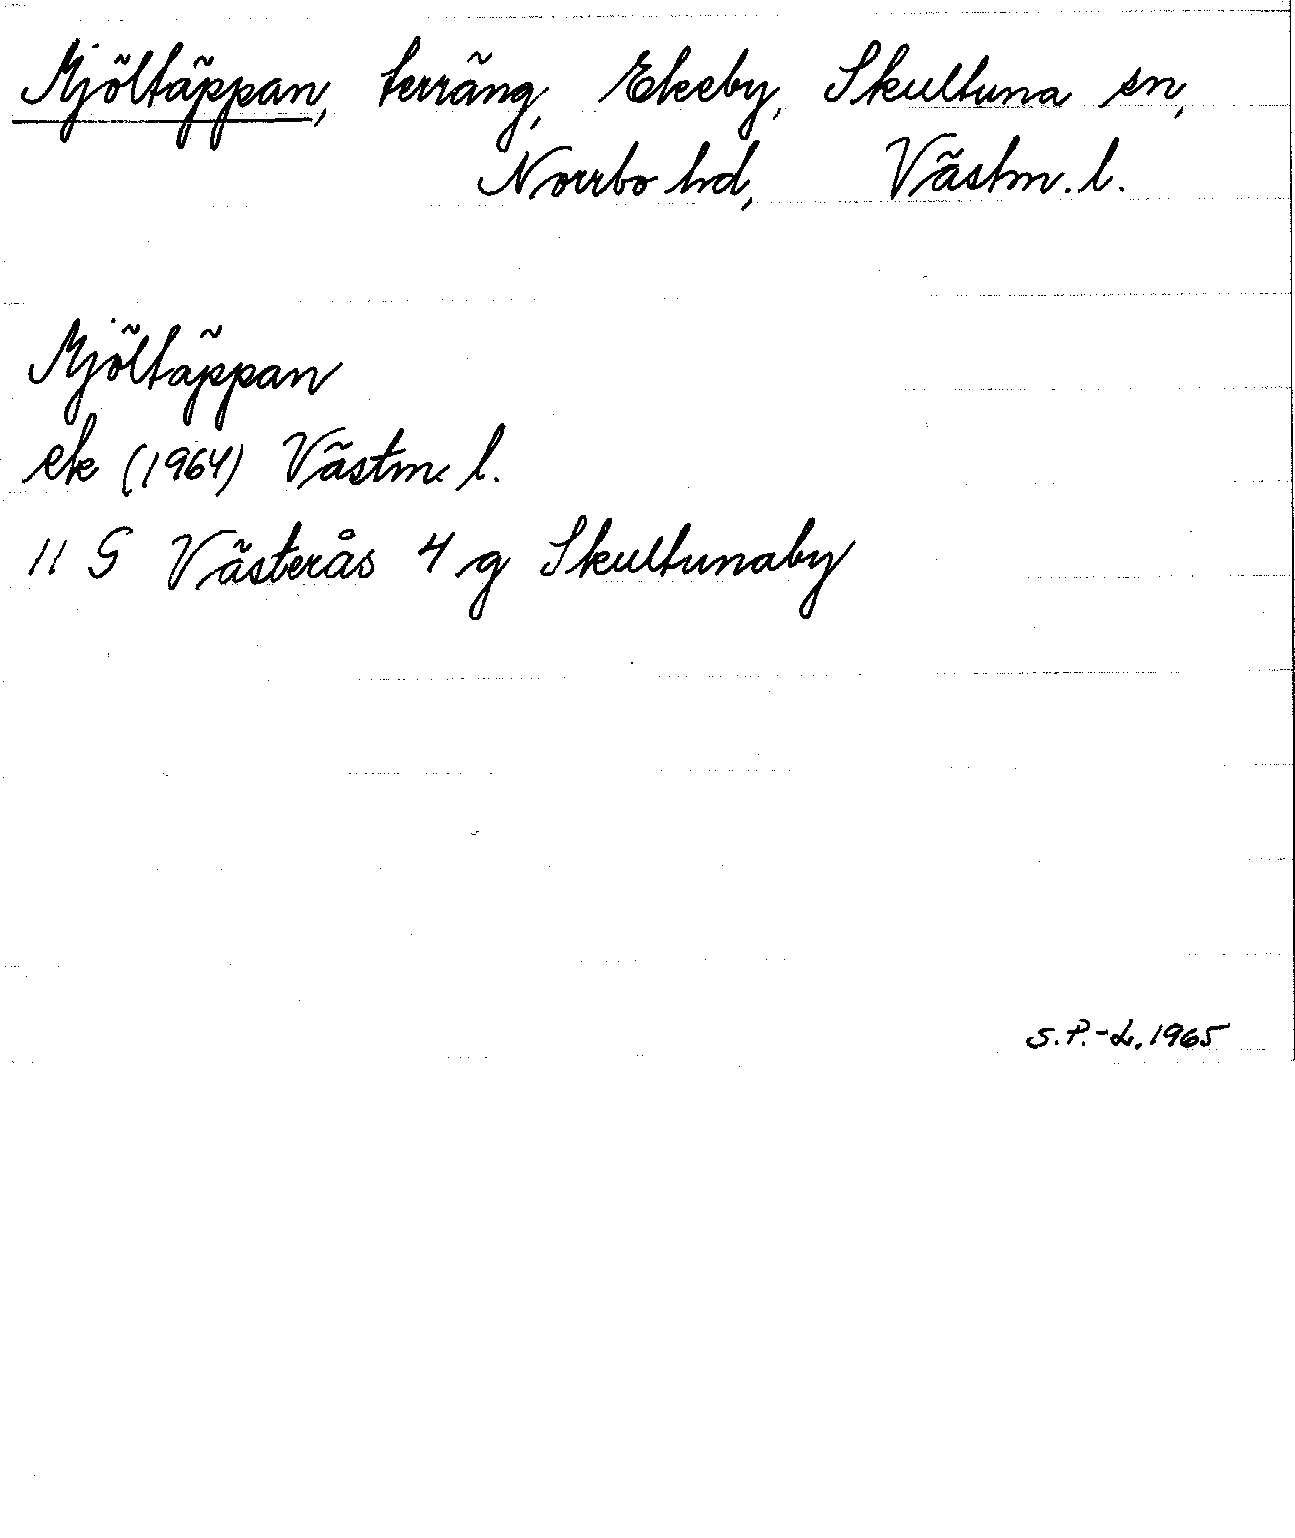 Mjöltäppan, terräng, Ekeby, Skultuna sn,
Norrbo hd, Västm. l.
Mjöltäppan
ek (1964) Västm. l.
11 G Västerås 4 g Skultunaby
S.P.-L. 1965